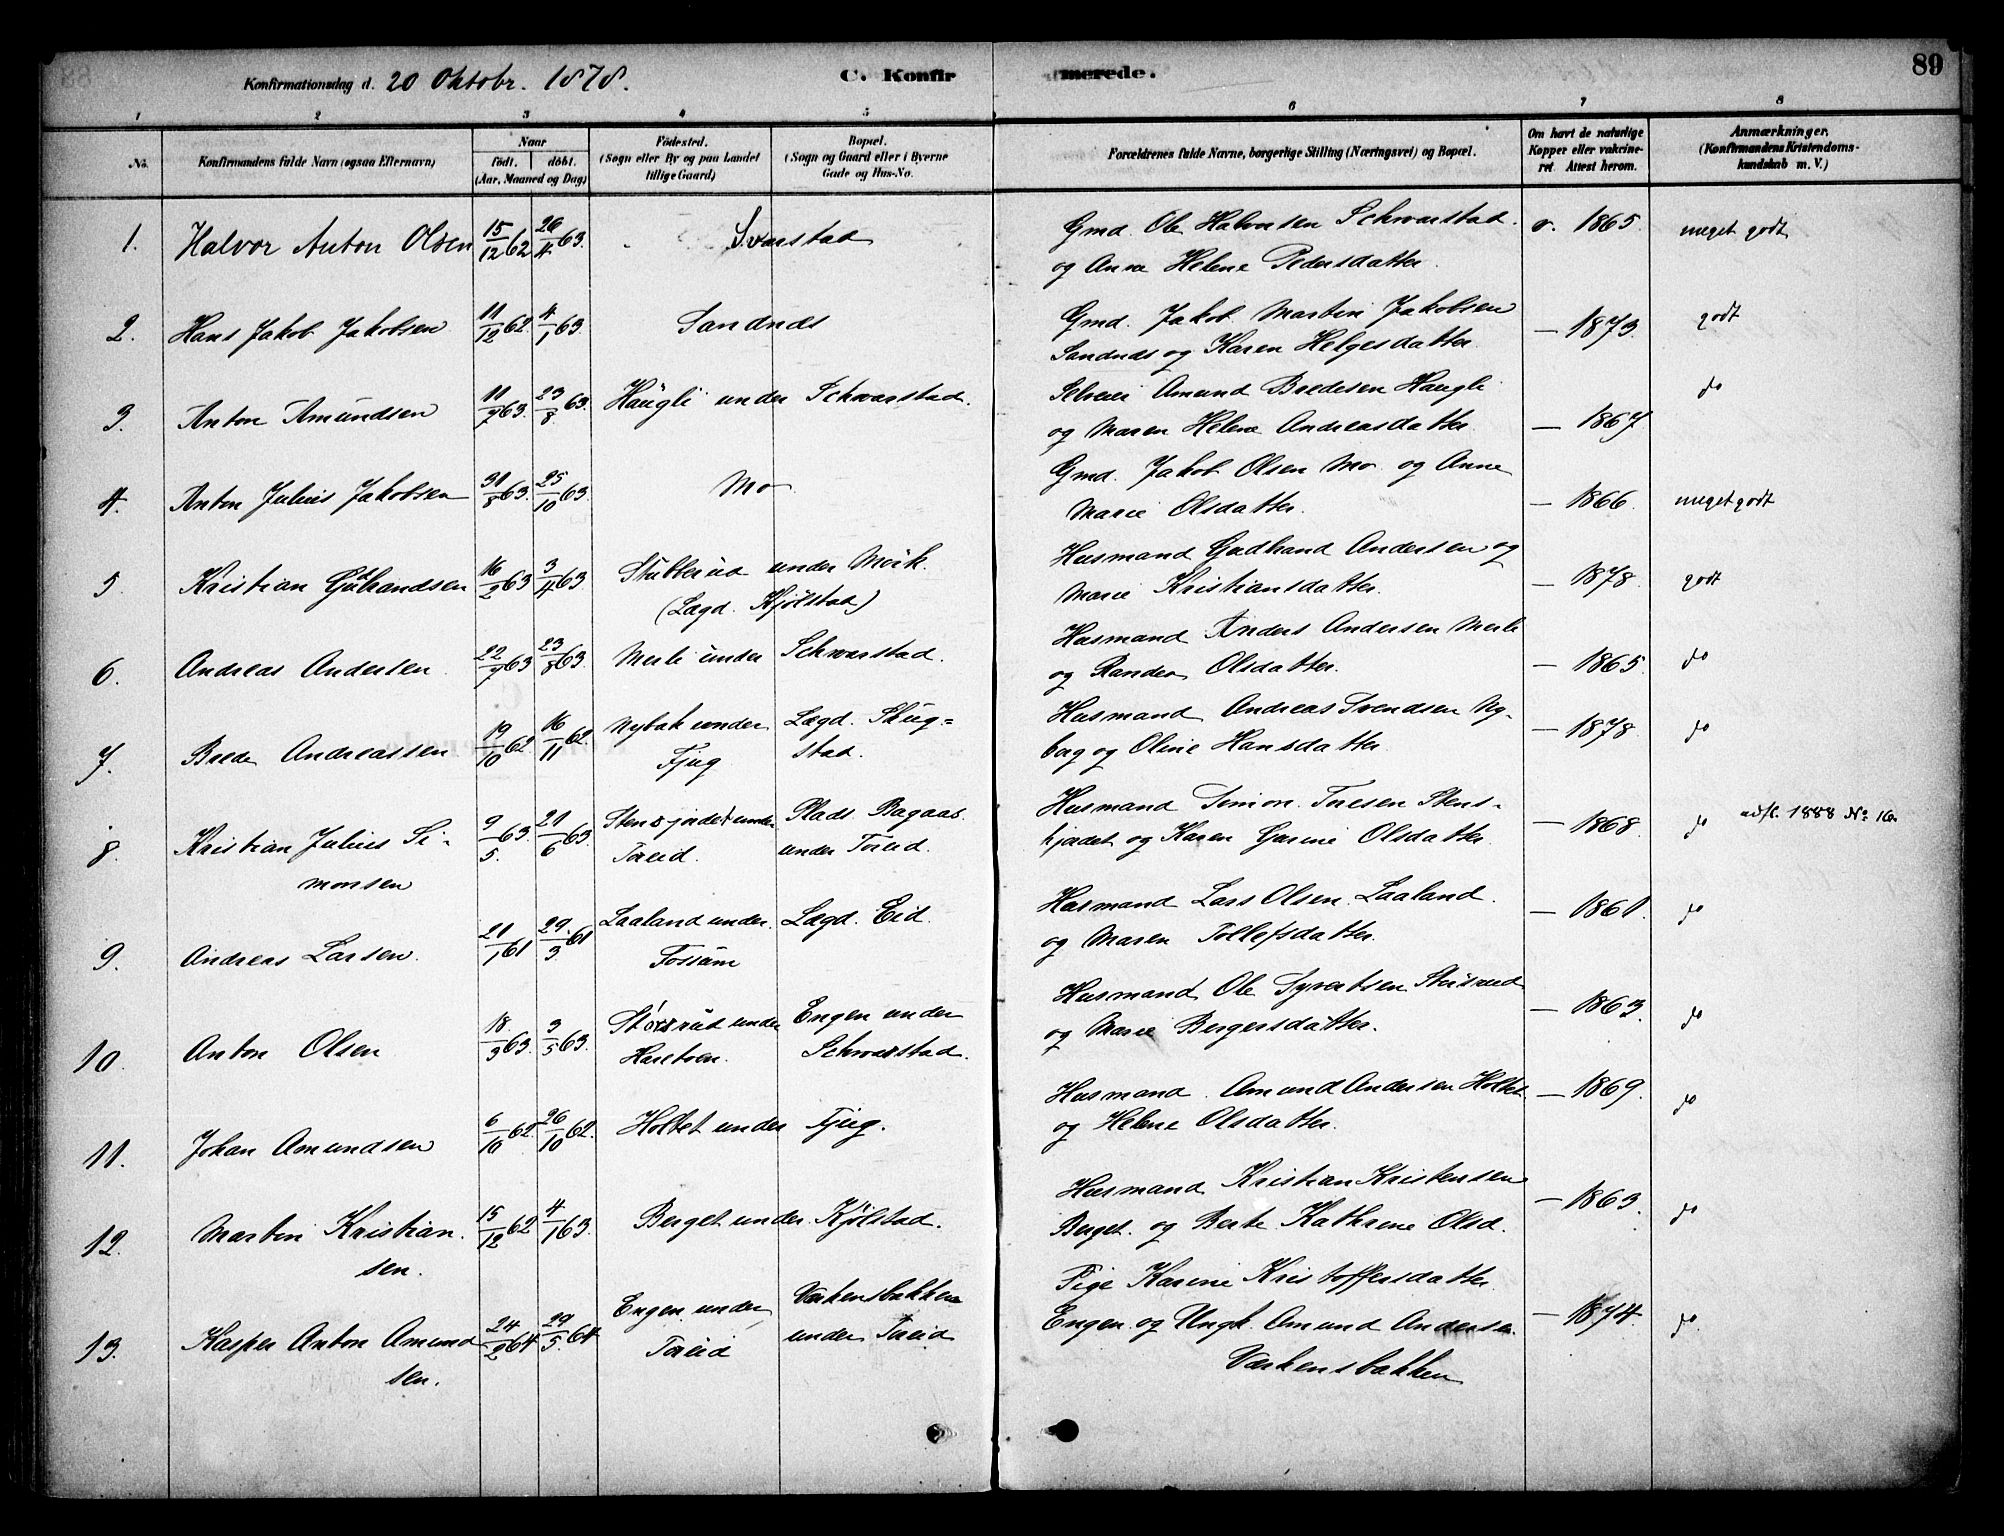 Konfirmationsdag d. 20 Oktobr. 1878.
C. Konfirmerede.
89
1 2 3 4 5 6 7 8
No.
Konfirmandens fulde Navn (ogsaa Efternavn)
Naar
födt. döbt.
(Aar, Maaned og Dag)
Födested.
(Sogn eller By og paa Landet
tillige Gaard)
Bopæl.
(Sogn og Gaard eller i Byerne
Gade og Hus-No.
Forældrenes fulde Navne, borgerlige Stilling (Næringsvei) og Bopæl.
Om havt de naturlige
Kopper eller vakcine-
ret. Attest herom.
Anmærkninger.
(Konfirmandens Kristendoms-
kundskab m. V.)
1. Halvor Anton Olsen 15/12 62 26/4 63. Svarstad Gmd. Ole Halvorsen Schwarstad v. 1865. meget godt
og Anne Helene Pedersdatter.
2. Hans Jakob Jakobsen 11/12 62 4/1 63. Sandnds Gmd. Jakob Martin Jakobsen — 1873. godt
Sandnds og Karen Helgesdatter.
3. Anton Amundsen 11/7 63. 23/8 63. Haugli under Schwarstad. Selveier Amund Bredesen Haugli do
og Maren Helene Andreasdatter. — 1867
4. Anton Julius Jakobsen 31/8 63. 25/10 63. Mo Gmd. Jakob Olsen Mo og Anne
Marie Olsdatter. — 1866 meget godt
5. Kristian Gudhandsen 16/2 63 3/4 63. Stubberud under Mörk. Husmand Gudhand Andersen og
(Lægd. Kjölstad) Marie Kristiansdatter. — 1878. godt
6. Andreas Andersen 22/7 63 23/8 63. Merli under Schwarstad. Husmand Anders Andersen Merli
og Randea Olsdatter. — 1865. do
7. Brede Andreassen 19/10 62. 16/11 62. Nybak under Lægd. Skug- Husmand Andreas Svendsen Ny-
Tjug stad. bag og Oline Hansdatter. — 1878. do
8. Kristian Julius Si- 9/5 63. 21/6 63. Stensjordet under Plads Bagaas Husmand Simon Toresen Stens-
monsen Toreid. under Toreid. hjordet og Karen Garine Olsdatter. — 1868. do udfl. 1888 No 16.
9. Andreas Larsen. 21/1 61 29/3 61 Laaland under Lægd. Eid. Husmand Lars Olsen Laaland
Fossum og Maren Tollefsdatter. — 1861. do
10. Anton Olsen 18/3 63. 3/5 63. under Engen under Husmand Ole Syvertsen
Schwarstad. og Marie Bergersdatter. — 1863. do
11. Johan Amundsen 6/10 62. 26/10 62. Holtet under Tjug. Husmand Amund Andersen Holtet — 1869. do
og Helene Olsdatter.
12. Martin Kristian 15/12 62 4/1 63. Berget under Kjölstad. Husmand Kristian Kristensen — 1863. do
sen. Berget og Berte Kathrine Olsd.
13. Kasper Anton Amund 24/2 64 29/5 64 Engen under Værkensbakken Pige Karine Kristoffersdatter
sen. Toreid under Toreid Engen og Ungk. Amund Andersen — 1874. do.
Værkensbakken